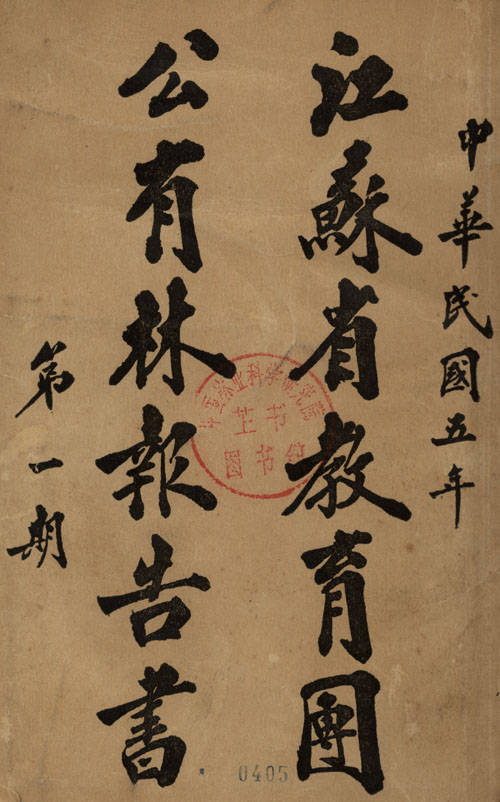 中華民國五年
江蘇省教育團
公有林報告書
第一期
中国林业科学研究院
图书馆
0405